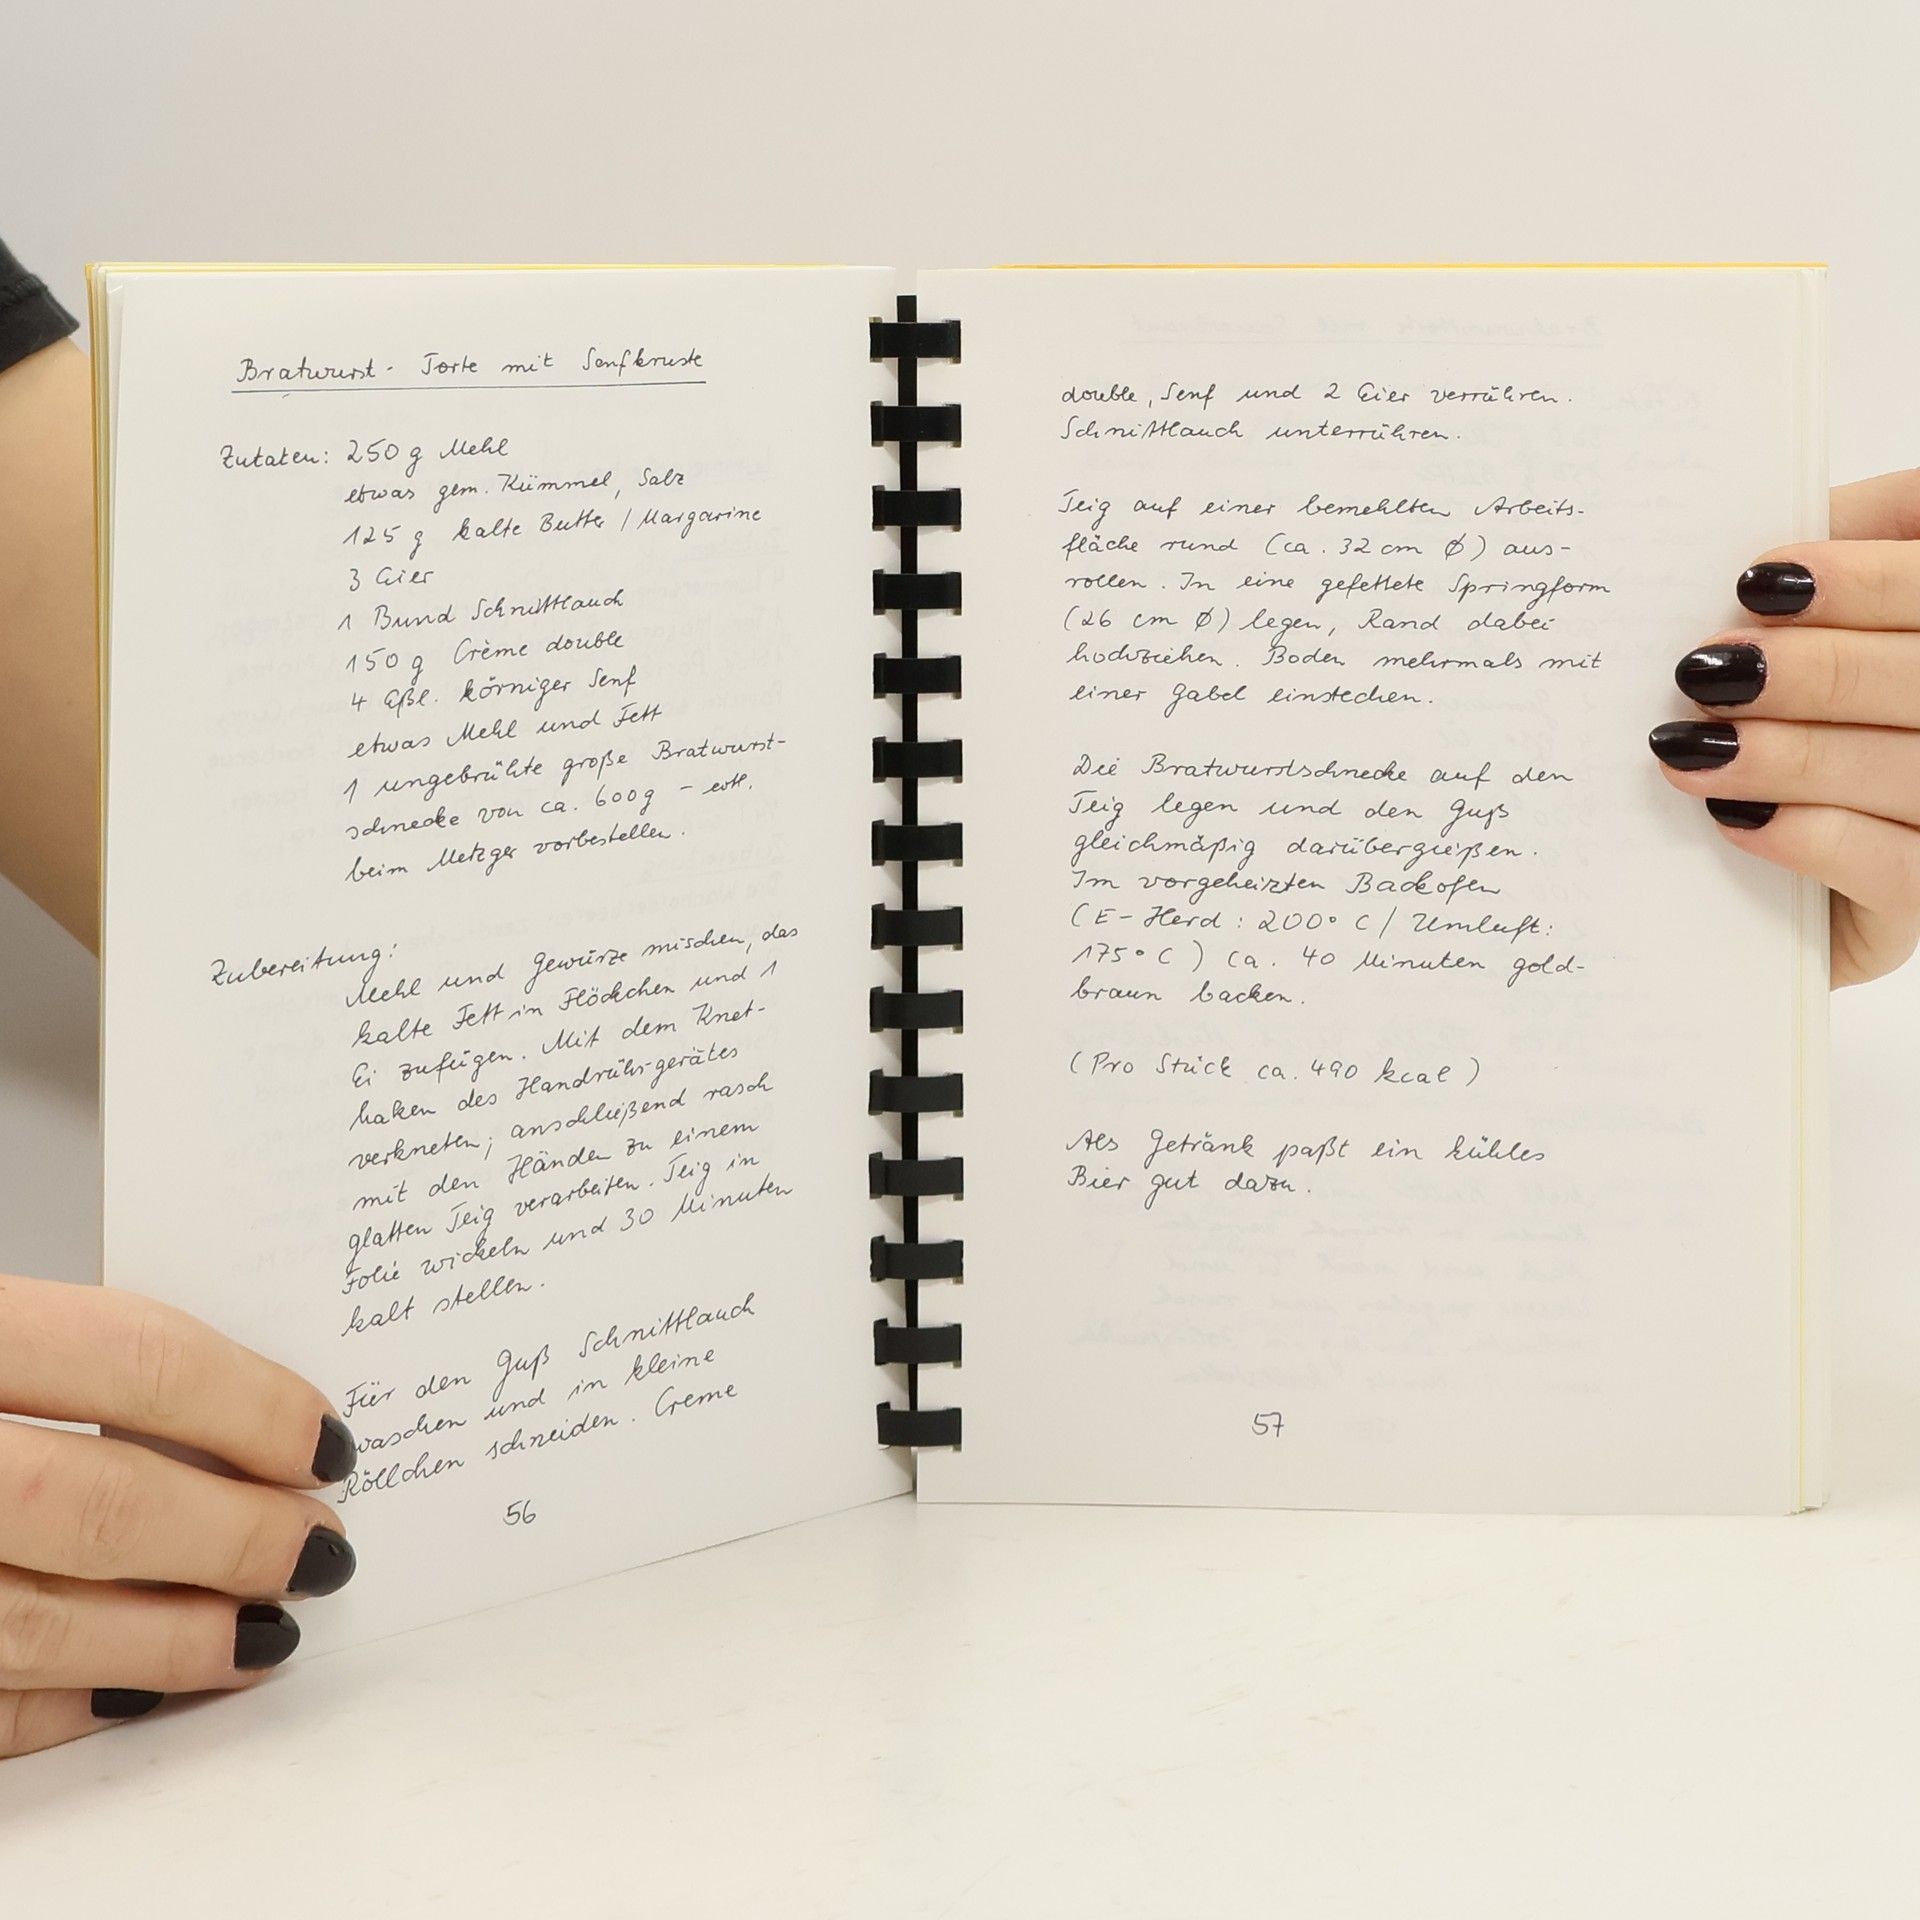 Bratwurst- Torte mit Senfkruste
Zutaten: 250 g Mehl
etwas gem. Kümmel, Salz
125 g kalte Butter / Margarine
3 Eier
1 Bund Schnittlauch
150 g Crème double
4 Eßl. körniger Senf
etwas Mehl und Fett
1 ungebrühte große Bratwurst-
schnecke von ca. 600g - evtl.
beim Metzger vorbestellen.
Zubereitung:
Mehl und Gewürze mischen, das
kalte Fett in Flöckchen und 1
Ei zufügen. Mit dem Knet-
haken des Handrühr-gerätes
verkneten; anschließend rasch
mit den Händen zu einem
glatten Teig verarbeiten. Teig in
Folie wickeln und 30 Minuten
kalt stellen.
Für den Guß Schnittlauch
waschen und in kleine
Röllchen schneiden. Creme
56
double, Senf und 2 Eier verrühren.
Schnittlauch unterrühren.
Teig auf einer bemehlten Arbeits-
fläche rund (ca. 32 cm Ø) aus-
rollen. In eine gefettete Springform
(26 cm Ø) legen, Rand dabei
hochziehen. Boden mehrmals mit
einer Gabel einstechen.
Die Bratwurstschnecke auf den
Teig legen und den Guß
gleichmäßig darübergießen.
Im vorgeheizten Backofen
(E-Herd: 200° C / Umluft:
175° C) ca. 40 Minuten gold-
braun backen.
(Pro Stück ca. 490 kcal)
Als Getränk paßt ein kühles
Bier gut dazu.
57